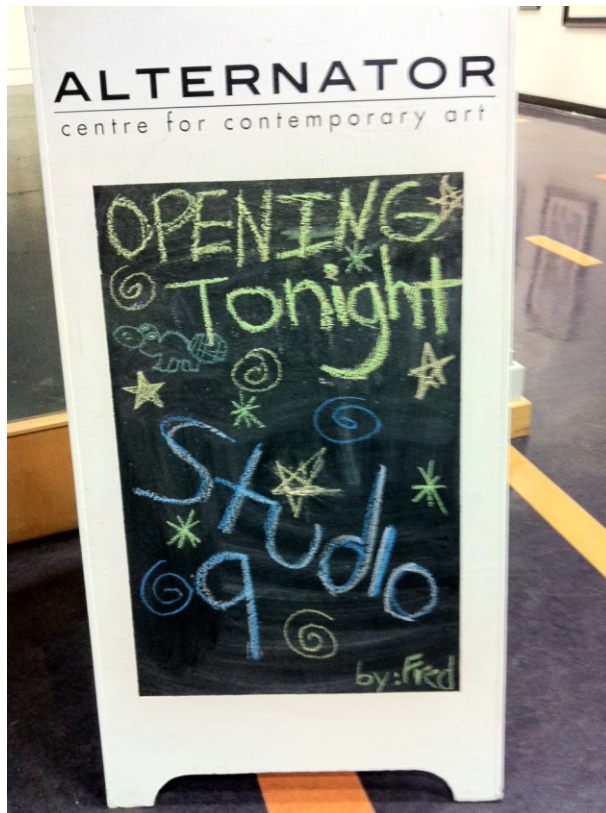 ALTERNATOR
centre for contemporary art
OPENING
Tonight
Studio
9
by: Fred